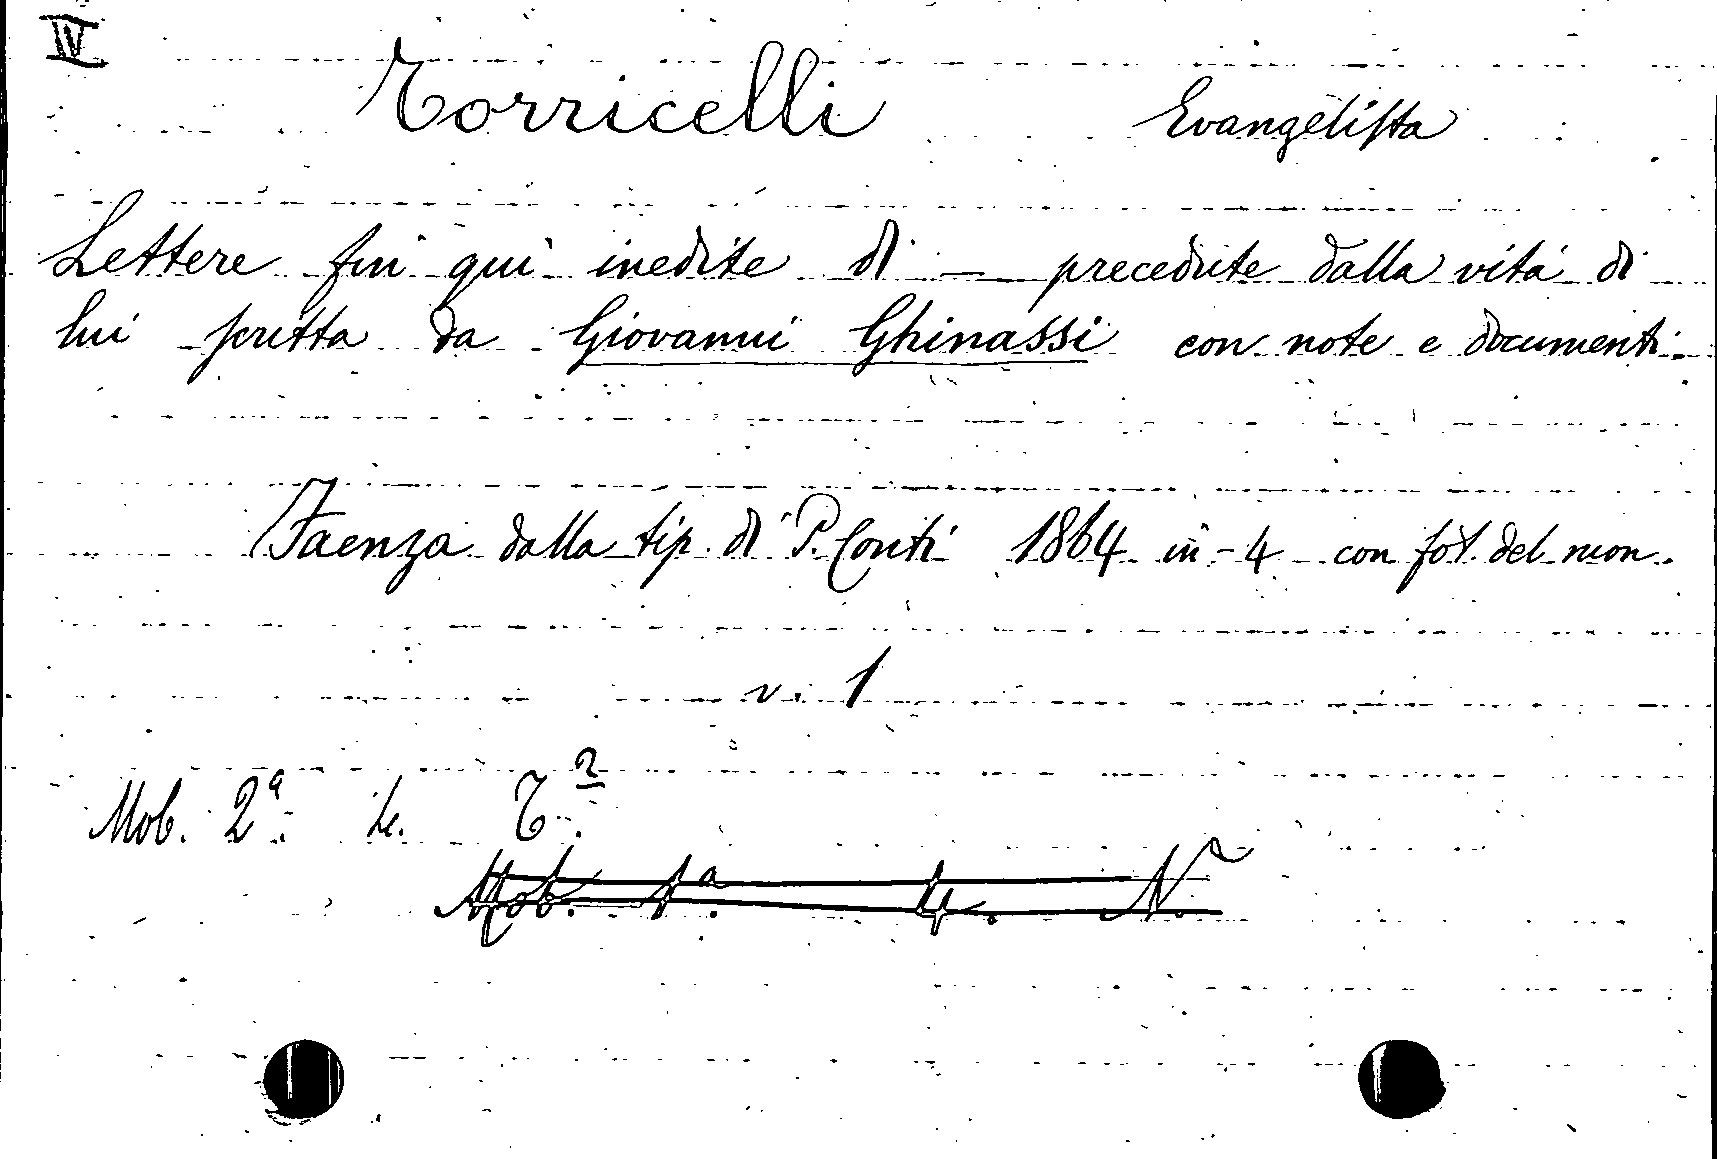 IV
Torricelli Evangelista
Lettere fin qui inedite di — precedute dalla vita di
lui scritta da Giovanni Ghinassi con note e documenti.
Faenza dalla tip. di P. Conti 1864 in-4 con fot. del mon.
v. 1
Mob. 2ª. L. T.2
Mob. 1ª. 4. N.